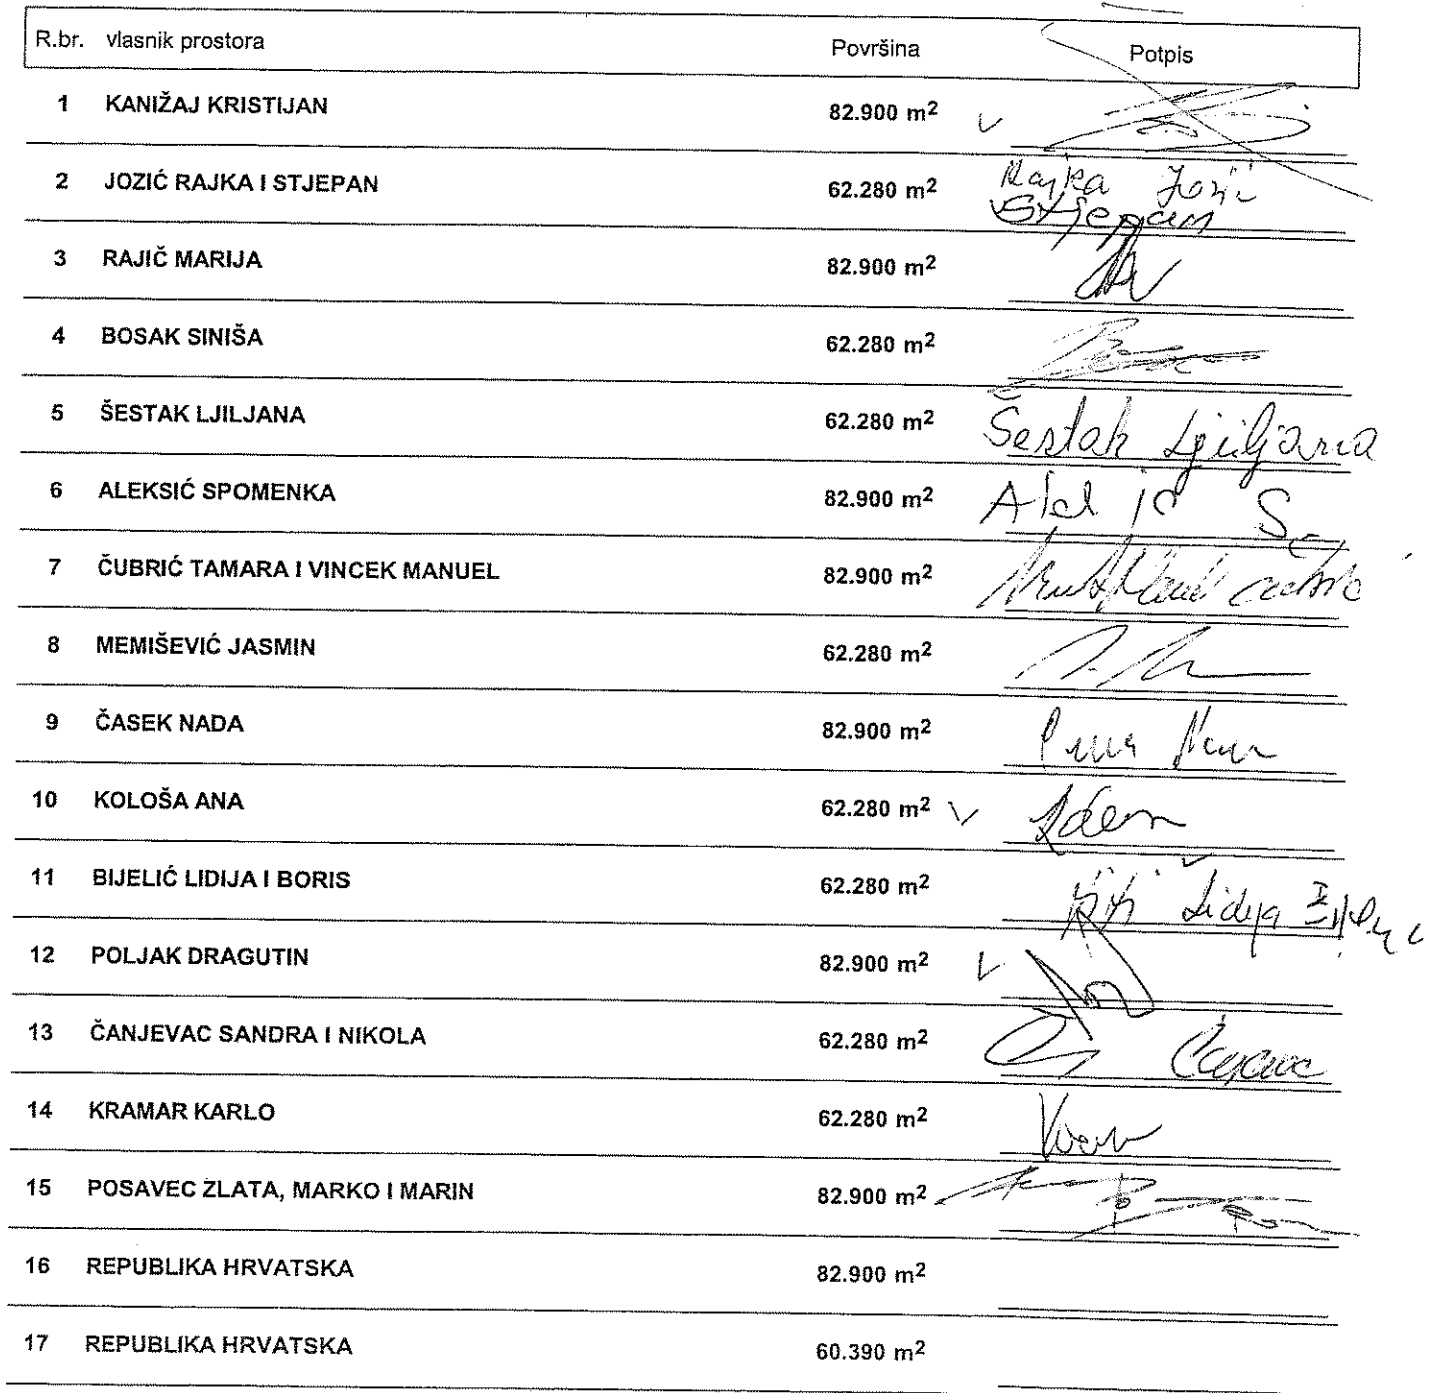 R.br. vlasnik prostora Površina Potpis
1 KANIŽAJ KRISTIJAN 82.900 m2
2 JOZIĆ RAJKA I STJEPAN 62.280 m2 Rajka Jozić
Stjepan
3 RAJIČ MARIJA 82.900 m2
4 BOSAK SINIŠA 62.280 m2
5 ŠESTAK LJILJANA 62.280 m2 Šestak Ljiljana
6 ALEKSIĆ SPOMENKA 82.900 m2
7 ČUBRIĆ TAMARA I VINCEK MANUEL 82.900 m2
8 MEMIŠEVIĆ JASMIN 62.280 m2
9 ČASEK NADA 82.900 m2
10 KOLOŠA ANA 62.280 m2
11 BIJELIĆ LIDIJA I BORIS 62.280 m2 Lidija
12 POLJAK DRAGUTIN 82.900 m2
13 ČANJEVAC SANDRA I NIKOLA 62.280 m2
14 KRAMAR KARLO 62.280 m2
15 POSAVEC ZLATA, MARKO I MARIN 82.900 m2
16 REPUBLIKA HRVATSKA 82.900 m2
17 REPUBLIKA HRVATSKA 60.390 m2